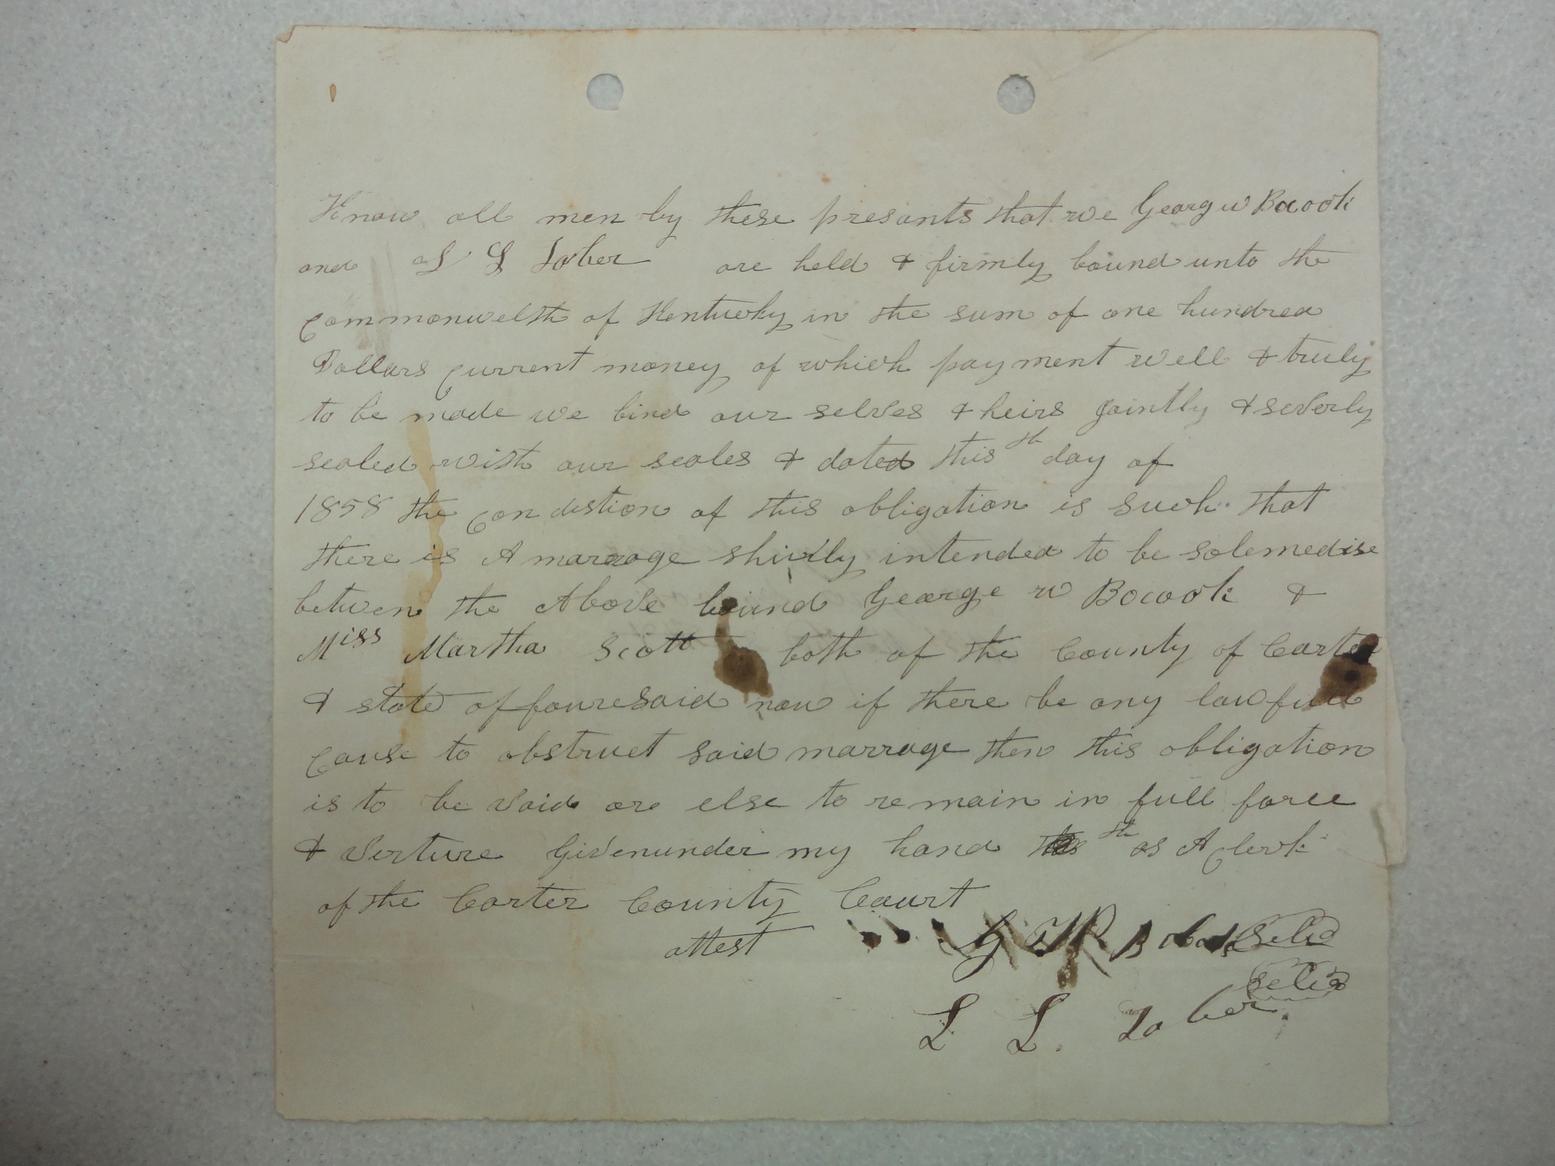 Know all men by these presants that we Georg w Bocook
and L L Tober are held & firmly bound unto the
Commonwelth of Kentucky in the sum of one hundred
Dollars Current money of which payment well & truly
to be made we bind our selves & heirs Jointly & severly
sealed with our seales & dated this th day of
1858 the Condistion of this obligation is such that
there is A marrage shirtly intended to be solemedise
between the Above bound George w Bocook &
Miss Martha Scott both of the County of Carter
& state affouresaid now if there be any lawfull
Cause to obstruct said marrage then this obligation
is to be void ore else to remain in full force
& verture Givenunder my hand this th as A Clerk
of the Carter County Court
attest G W Bocook Seled
Seled
L L. Tober